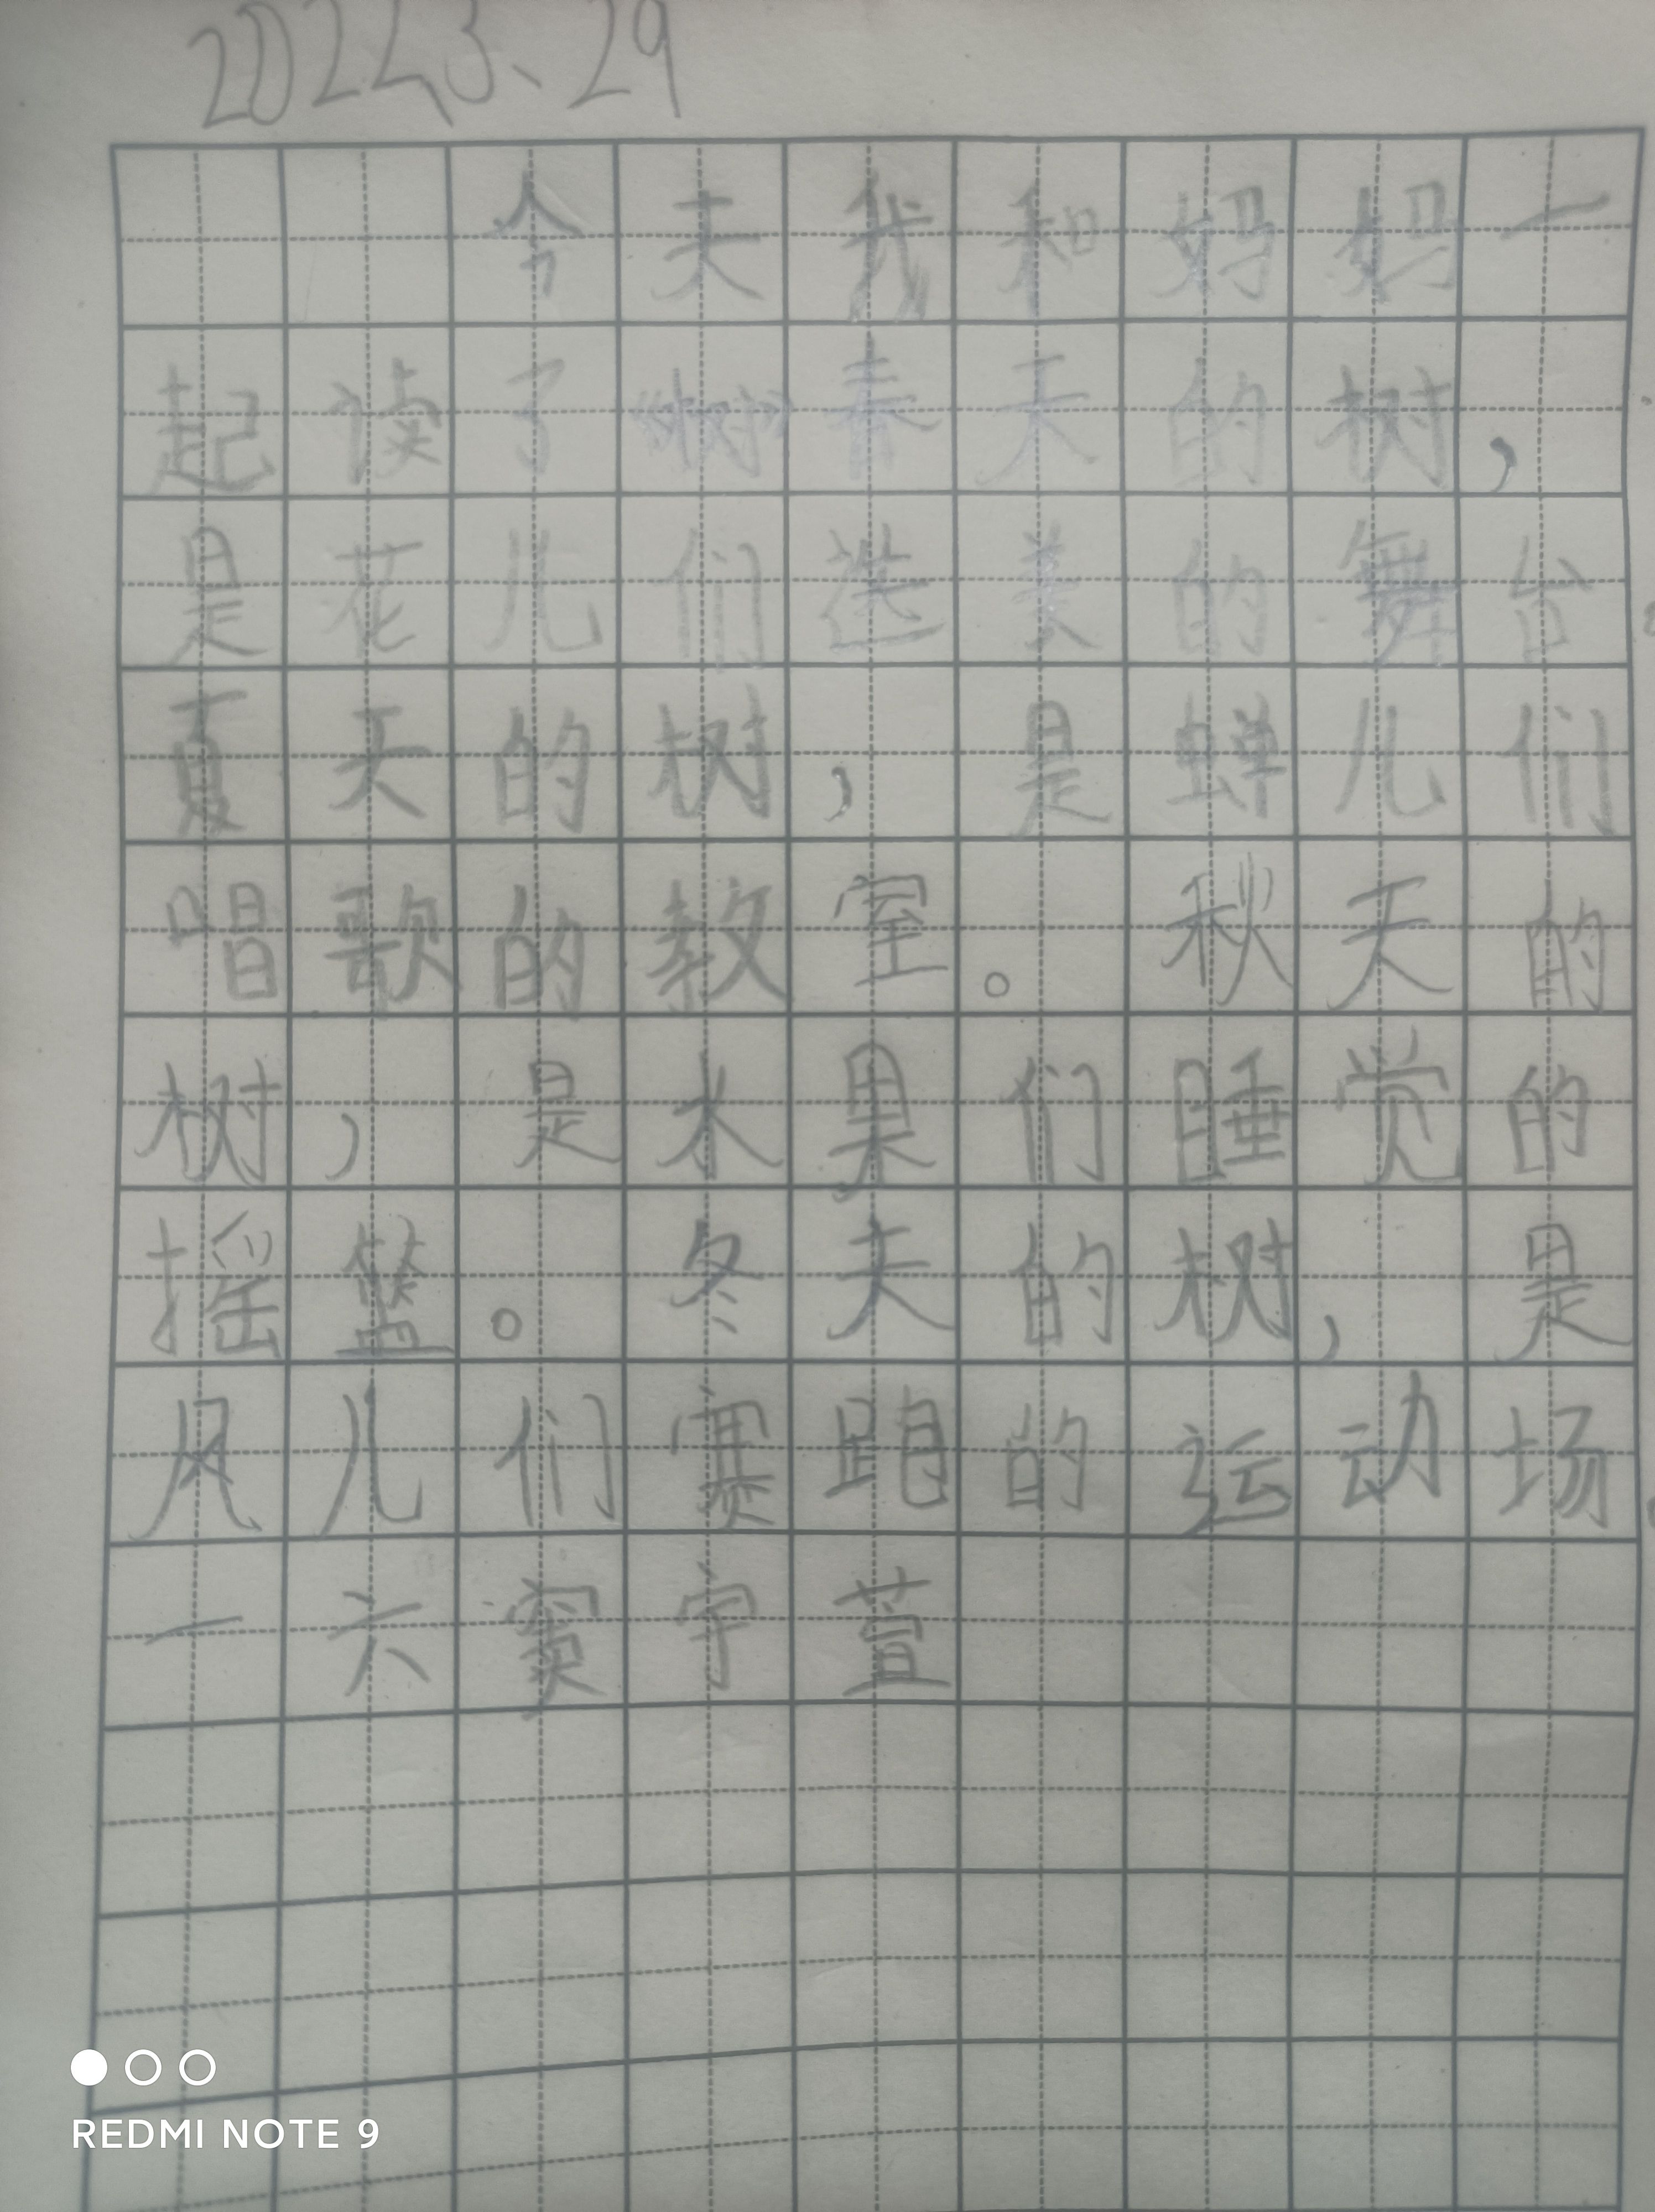 2024.3、29
今天我和妈妈一
起读了《树》春天的树，
是花儿们选美的舞台。
夏天的树，是蝉儿们
唱歌的教室。秋天的
树，是水果们睡觉的
摇篮。冬天的树，是
风儿们赛跑的运动场。
一六窦宇萱
REDMI NOTE 9